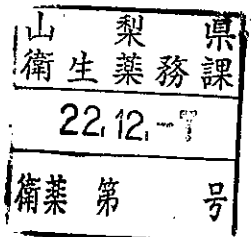 山梨県
衛生薬務課
22.12.-7
衛薬第 号